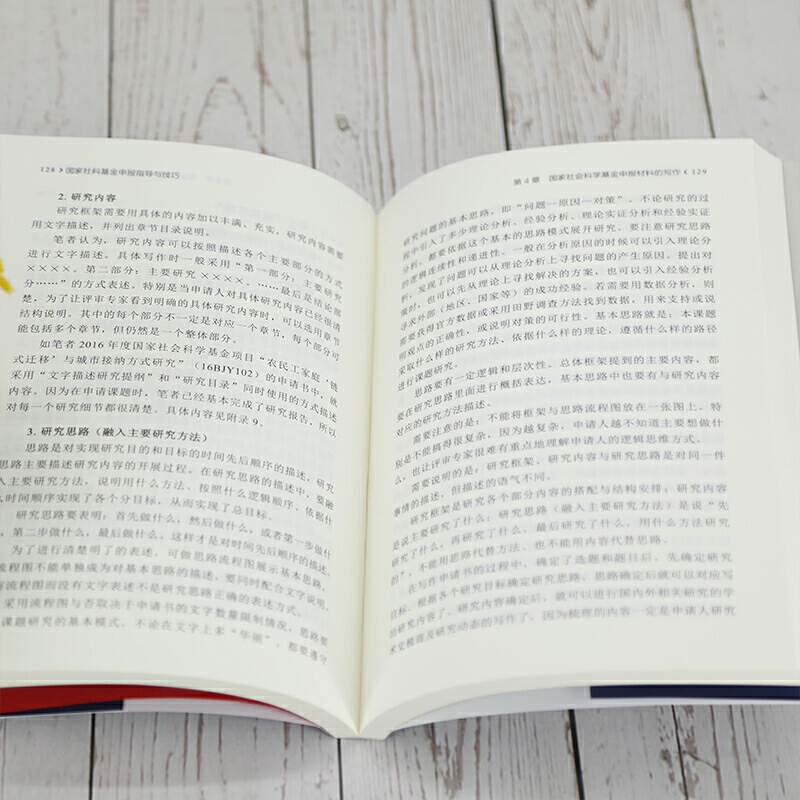 128 › 国家社科基金申报指导与技巧
2. 研究内容
研究框架需要用具体的内容加以丰满、充实，研究内容需要
用文字描述，并列出章节目录说明。
笔者认为，研究内容可以按照描述各个主要部分的方式
进行文字描述。具体写作时一般采用“第一部分：主要研究
××××。第二部分：主要研究××××。……最后是结论部
分……”的方式表述。特别是当申请人对具体研究内容已经很清
楚，为了让评审专家看到明确的具体研究内容时，可以选用章节
结构说明。其中的每个部分不一定是对应一个章节，每个部分可
能包括多个章节，但仍然是一个整体部分。
如笔者 2016 年度国家社会科学基金项目“农民工家庭‘链
式迁移’与城市接纳方式研究”（16BJY102）的申请书中，就
采用“文字描述研究提纲”和“研究目录”同时使用的方式描述
内容。因为在申请课题时，笔者已经基本完成了研究报告，所以
对每一个研究细节都很清楚。具体内容见附录 9。
3. 研究思路（融入主要研究方法）
思路是对实现研究目的和目标的时间先后顺序的描述，研究
思路主要描述研究内容的开展过程。在研究思路的描述中，要融
入主要研究方法，说明用什么方法、按照什么逻辑顺序、依据什
么时间顺序实现了各个分目标，从而实现了总目标。
研究思路要表明：首先做什么，然后做什么，或者第一步做什
，第二步做什么，最后做什么。这样才是对时间先后顺序的描述。
为了进行清楚明了的表述，可做思路流程图展示基本思路，
流程图不能单独成为对基本思路的描述，要同时配合文字说明，
有流程图而没有文字表述不是研究思路正确的表述方式。
采用流程图与否取决于申请书的文字数量限制情况，思路要
课题研究的基本模式。不论在文字上多“华丽”，都要遵守
第 4 章 国家社会科学基金申报材料的写作 ‹ 129
研究问题的基本思路，即“问题一原因一对策”。不论研究的过
程中引入了多少理论分析、经验分析、理论实证分析和经验实证
分析，都要依据这个基本的思路模式展开研究。要注意研究思路
的逻辑连续性和递进性。一般在分析原因的时候可以引入理论分
析，发现了问题可以从理论分析上寻找问题的产生原因。提出对
策时，也可以先从理论上寻找解决的方案，也可以引入经验分析
寻求外部（地区、国家等）的成功经验。若需要用数据分析，则
需要获得官方数据或采用田野调查方法找到数据，用来支持或说
明观点的正确性，或说明对策的可行性。基本思路就是：本课题
采取什么样的研究方法、依据什么样的理论，遵循什么样的路径
进行课题研究。
思路要有一定逻辑和层次性。总体框架提到的主要内容，都
要在研究思路里面进行概括表达，基本思路中也要有与研究内容
对应的研究方法描述。
需要注意的是：不能将框架与思路流程图放在一张图上。特
别是不能搞得很复杂，因为越复杂，申请人越不知道主要想做什
么，也让评审专家很难有重点地理解申请人的逻辑思维方式。
需要说明的是：研究框架、研究内容与研究思路是对同一件
事情的描述，但描述的语气不同。
研究框架是研究各个部分内容的搭配与结构安排；研究内容
是说主要研究了什么；研究思路（融入主要研究方法）是说“先
研究了什么，再研究了什么，最后研究了什么，用什么方法研究
的”，不能用思路代替方法、也不能用内容代替思路。
在写作申请书的过程中，确定了选题和题目后，先确定研究
目标，根据各个研究目标确定研究思路，思路确定后就可以对应写
出研究内容了，研究内容确定后，就可以进行国内外相关研究的学
术史梳理及研究动态的写作了，因为梳理的内容一定是申请人研究